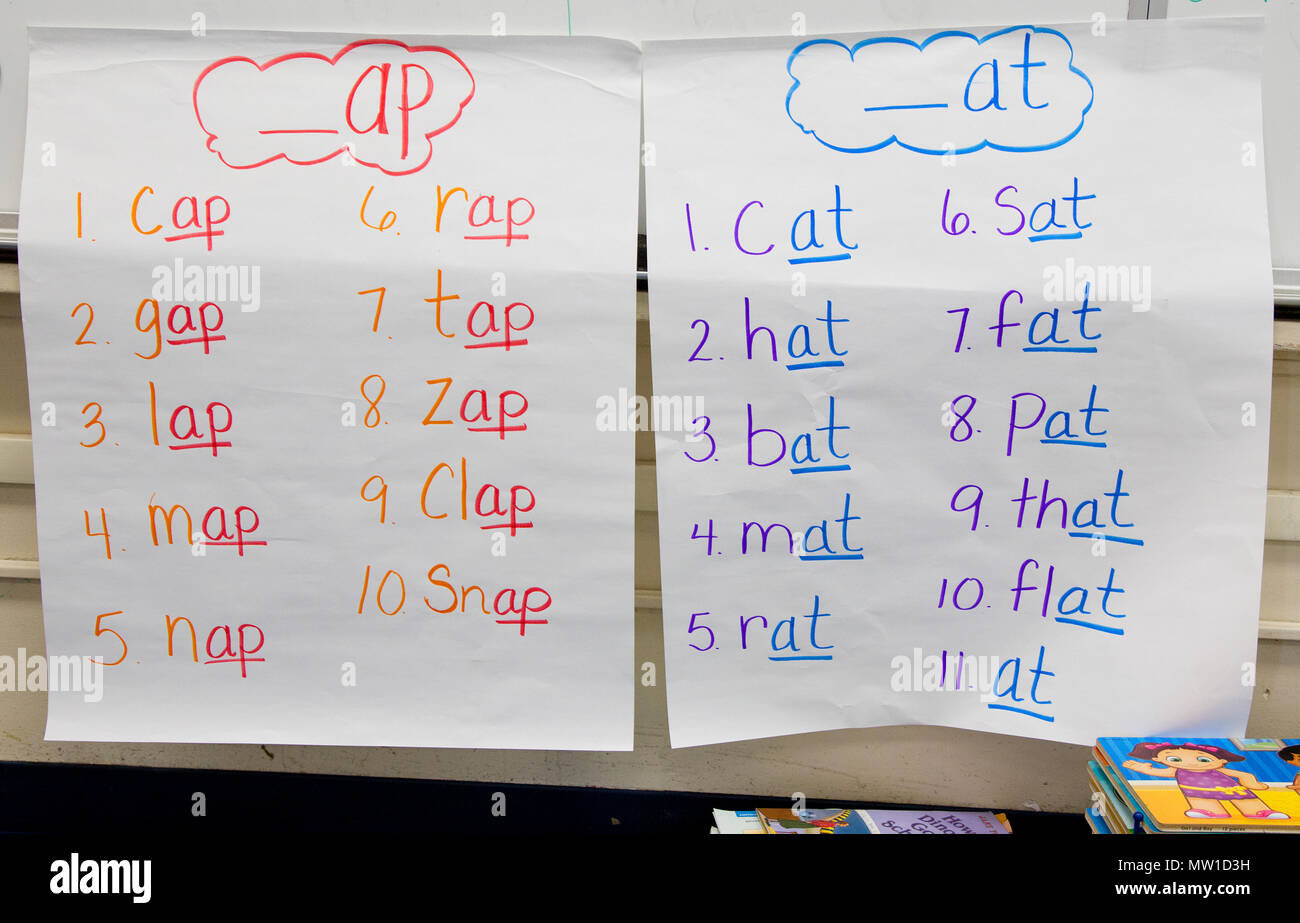 __ap
1. cap
2. gap
3. lap
4. map
5. nap
6. rap
7. tap
8. zap
9. clap
10. snap
__at
1. cat
2. hat
3. bat
4. mat
5. rat
6. sat
7. fat
8. pat
9. that
10. flat
11. at
How
Girl and Boy 12 pieces
alamy
Image ID: MW1D3H
www.alamy.com